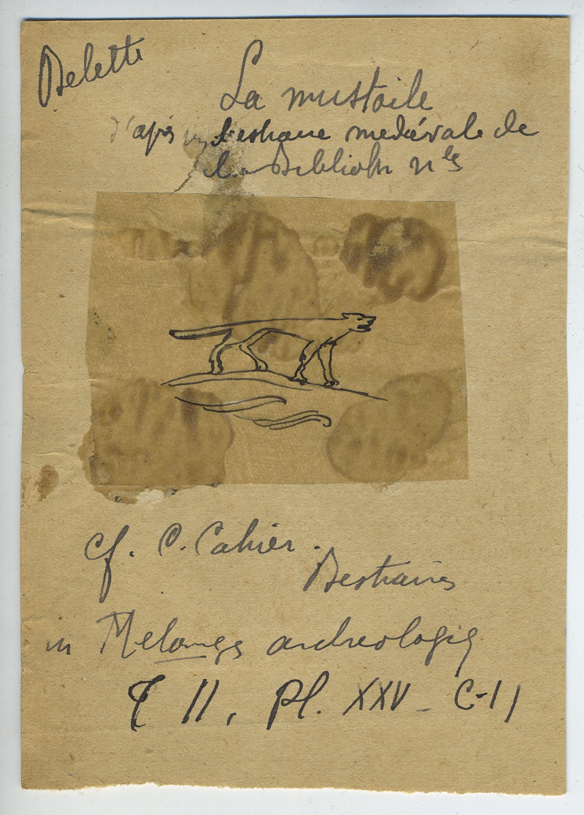 Belette
La mustoile
d'après un bestiaire mediévale de
la Biblioth nle
cf. C. Cahier.
Bestiaires
in Melanges archeologie
T II, Pl. XXV - C-11